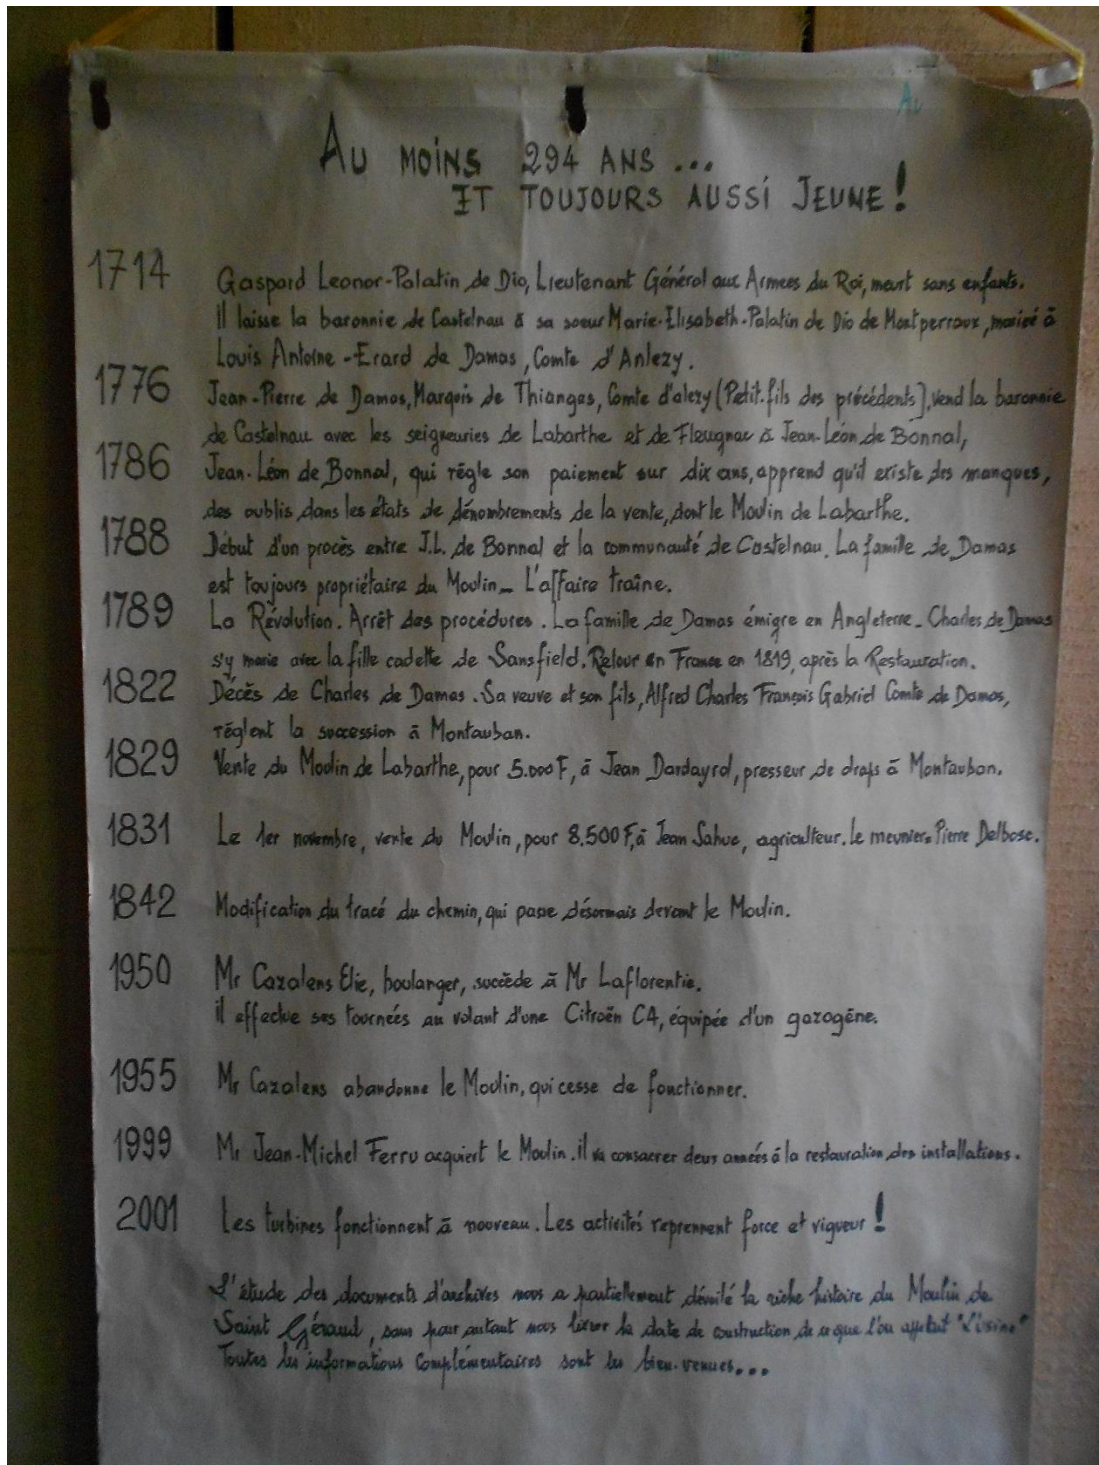 Au moins 294 ans...
Et toujours aussi jeune!
1714 Gaspard Leonor-Palatin de Dio, Lieutenant Général aux Armees du Roi, meurt sans enfants.
Il laisse la baronnie de Castelnau à sa soeur Marie-Elisabeth-Palatin de Dio de Montperroux, mariée à
Louis Antoine-Erard de Damas, Comte d'Anlezy.
1776 Jean-Pierre de Damas, Marquis de Thianges, Comte d'alezy (Petit-fils des précédents), vend la baronnie
de Castelnau avec les seigneuries de Labarthe et de Fleugnac à Jean-Léon de Bonnal,
1786 Jean-Léon de Bonnal, qui règle son paiement sur dix ans, apprend qu'il existe des manques,
des oublis dans les états de dénombrements de la vente, dont le Moulin de Labarthe.
1788 Début d'un procès entre J.L. de Bonnal et la communauté de Castelnau. La famille de Damas
est toujours propriétaire du Moulin_ L'affaire traîne.
1789 La Révolution. Arrêt des procédures. La famille de Damas émigre en Angleterre_ Charles de Damas
s'y marie avec la fille cadette de Sansfield. Retour en France en 1819, après la Restauration.
1822 Décès de Charles de Damas. Sa veuve et son fils, Alfred Charles François Gabriel Comte de Damas,
règlent la succession à Montauban.
1829 Vente du Moulin de Labarthe, pour 5.000 F, à Jean Dardayrol, presseur de draps à Montauban.
1831 Le 1er novembre, vente du Moulin, pour 8.500 F, à Jean Sahuc, agriculteur. Le meunier= Pierre Delbosc.
1842 Modification du tracé du chemin, qui passe désormais devant le Moulin.
1950 Mr Cazalens Elie, boulanger, succède à Mr Laflorentie.
Il effectue ses tournées au volant d'une Citroën C4, équipée d'un gazogène.
1955 Mr Cazalens abandonne le Moulin, qui cesse de fonctionner.
1999 Mr Jean-Michel Ferru acquiert le Moulin. Il va consacrer deux années à la restauration des installations.
2001 Les turbines fonctionnent à nouveau. Les activités reprennent force et vigueur!
L'étude des documents d'archives nous a partiellement dévoilé la riche histoire du Moulin de
Saint Géraud, sans pour autant nous livrer la date de construction de ce que l'on appelait "L'usine"
Toutes les informations complémentaires sont les bien-venues...